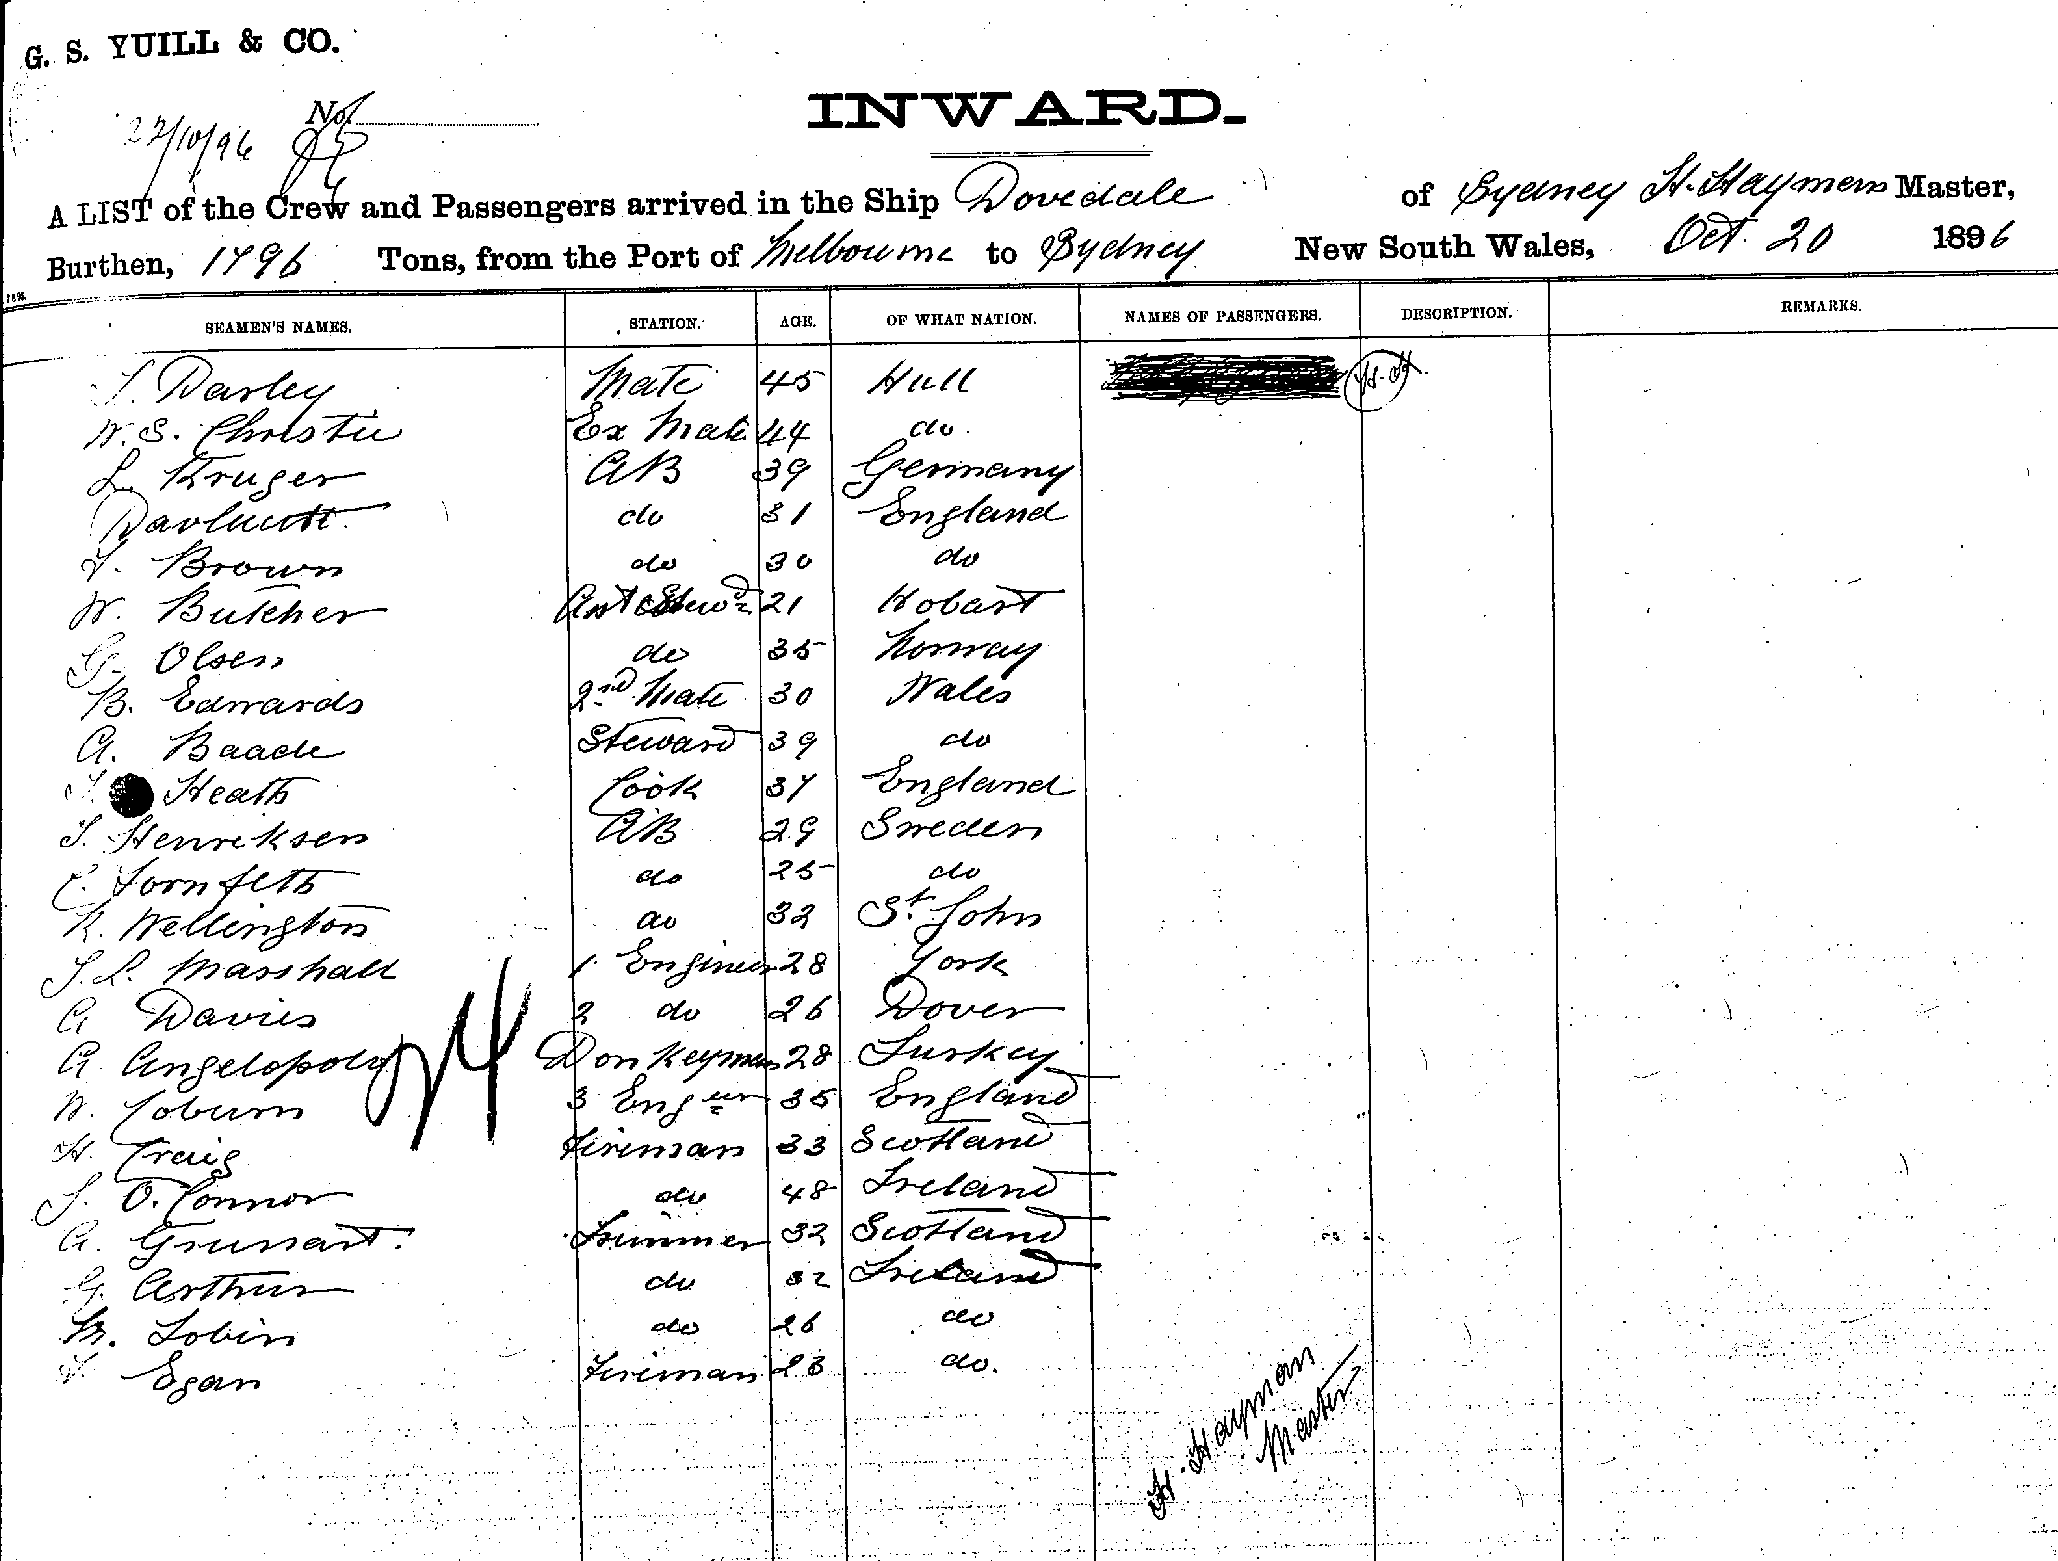 G. S. YUILL & CO.
No.
22/10/96
INWARD.
A LIST of the Crew and Passengers arrived in the Ship Dovedale of Sydney H. Haymen Master,
Burthen, 1796 Tons, from the Port of Melbourne to Sydney New South Wales, Oct. 20 1896
SEAMEN'S NAMES. STATION. AGE. OF WHAT NATION. NAMES OF PASSENGERS. DESCRIPTION. REMARKS.
Darley Mate 45 Hull H. H.
W. S. Christie Ex Mate 44 do
L. Kruger AB 39 Germany
do 31 England
Brown do 30 do
W. Butcher Ast Stewd 21 Hobart
G. Olsen do 35 Norway
B. Edwards 2nd Mate 30 Wales
A. Baade Steward 39 do
Heath Cook 37 England
J. Henriksen AB 29 Sweden
C. do 25 do
R. Wellington do 32 St. John
J. L. Marshall 1 Engineer 28 York
A Davies 2 do 26 Dover
A Angelopolo Donkeyman 28 Turkey
24
W. Coburn 3 Engeer 35 England
H. Craig Fireman 33 Scotland
J. O. Connor do 48 Ireland
A. Trimmer 32 Scotland
G. Arthur do 32 Ireland
M. Tobin do 26 do
Egan Fireman 23 do.
H. Hayman
Master